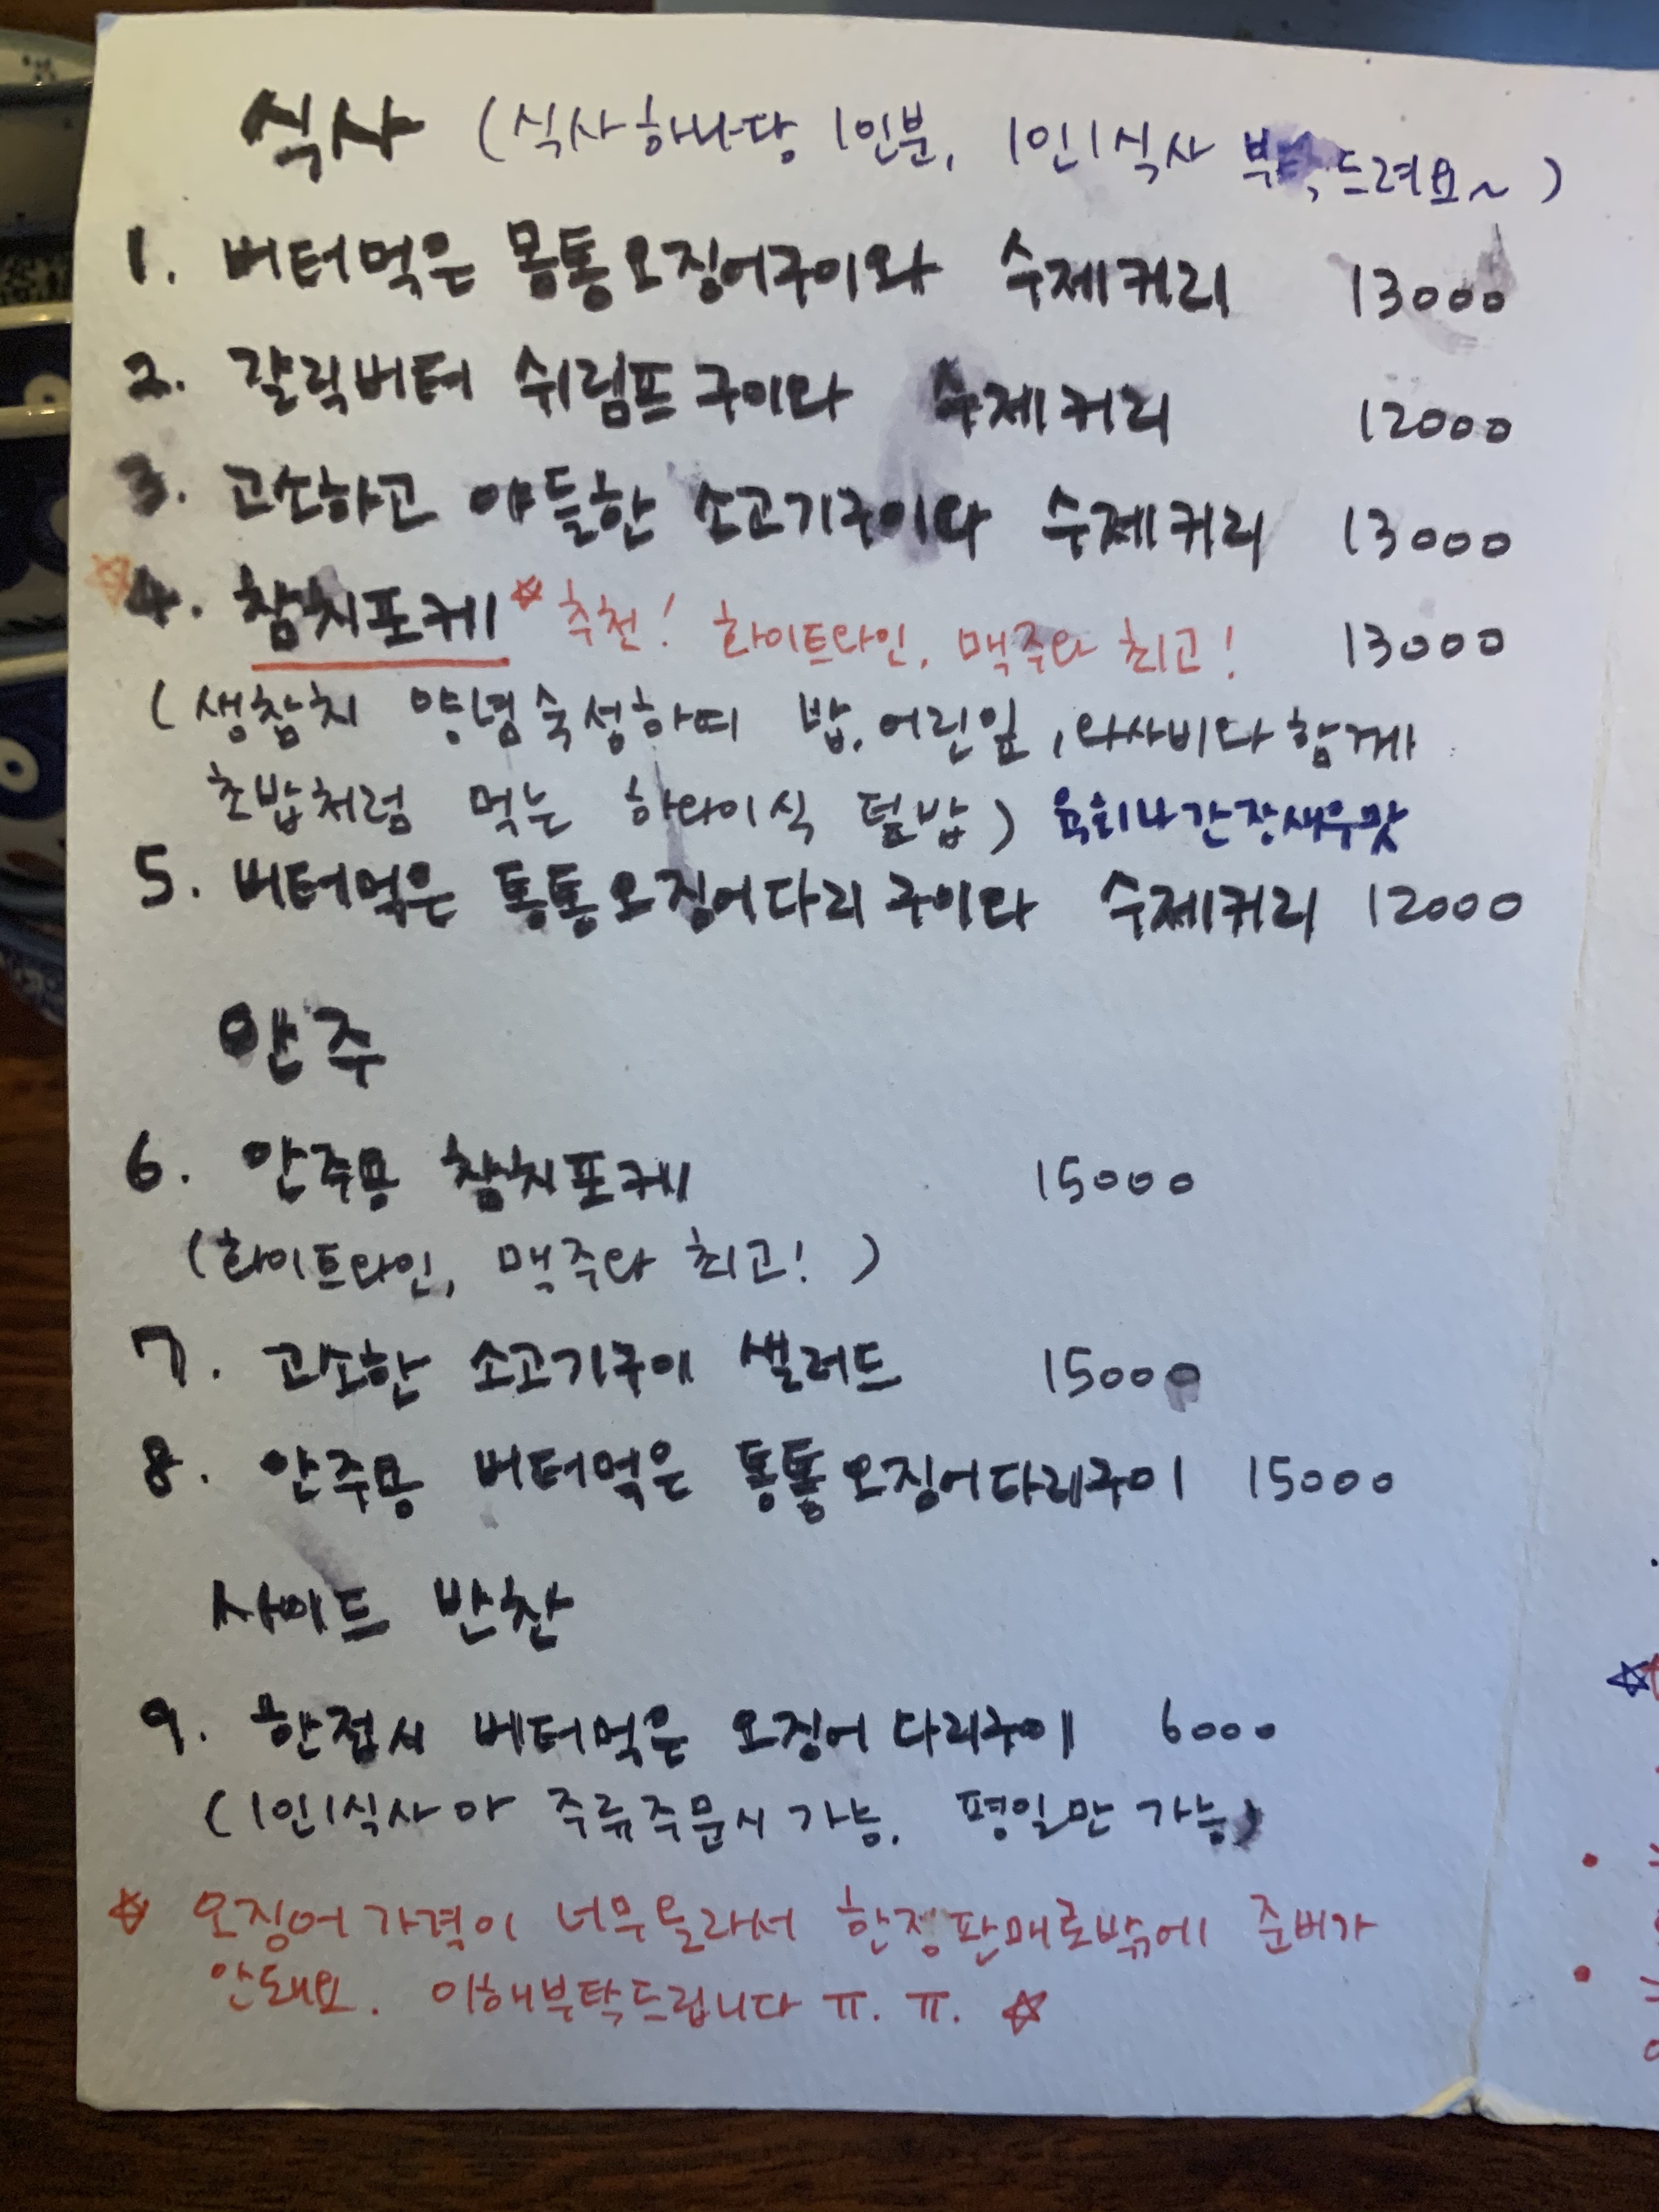 식사 (식사하나당 1인분, 1인1식사 부탁드려요~)
1. 버터먹은 몽통오징어구이와 수제커리 13000
2. 갈릭버터 쉬림프구이와 수제커리 12000
3. 고소하고 야들한 소고기구이와 수제커리 13000
☆4. 참치포케☆ 추천! 화이트와인, 맥주와 최고! 13000
(생참치 양념숙성하여 밥, 어린잎, 와사비와 함께
초밥처럼 먹는 하와이식 덮밥) 육회나간장새우맛
5. 버터먹은 통통오징어다리구이와 수제커리 12000
안주
6. 안주용 참치포케 15000
(화이트와인, 맥주와 최고!)
7. 고소한 소고기구이 샐러드 15000
8. 안주용 버터먹은 통통오징어다리구이 15000
사이드 반찬
9. 한접시 버터먹은 오징어다리구이 6000
(1인1식사와 주류주문시가능. 평일만 가능)
☆ 오징어가격이 너무올라서 한정판매로밖에 준비가
안돼요. 이해부탁드립니다 ㅠ.ㅠ. ☆